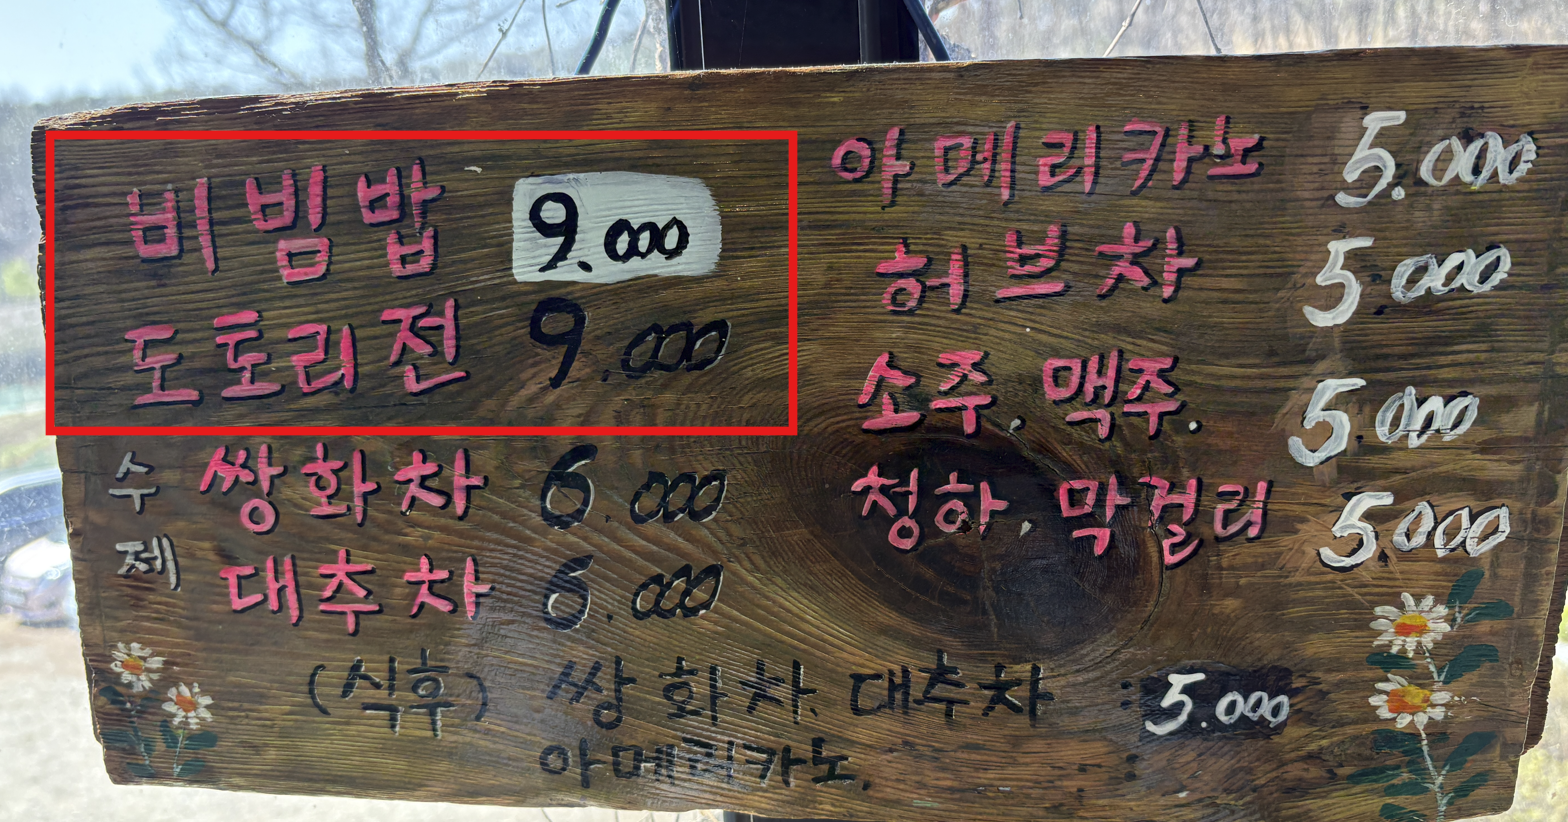 비빔밥 9.000
도토리전 9.000
수제 쌍화차 6.000
대추차 6.000
아메리카노 5.000
허브차 5.000
소주, 맥주. 5.000
청하, 막걸리 5.000
(식후) 쌍화차, 대추차 : 5.000
아메리카노, :